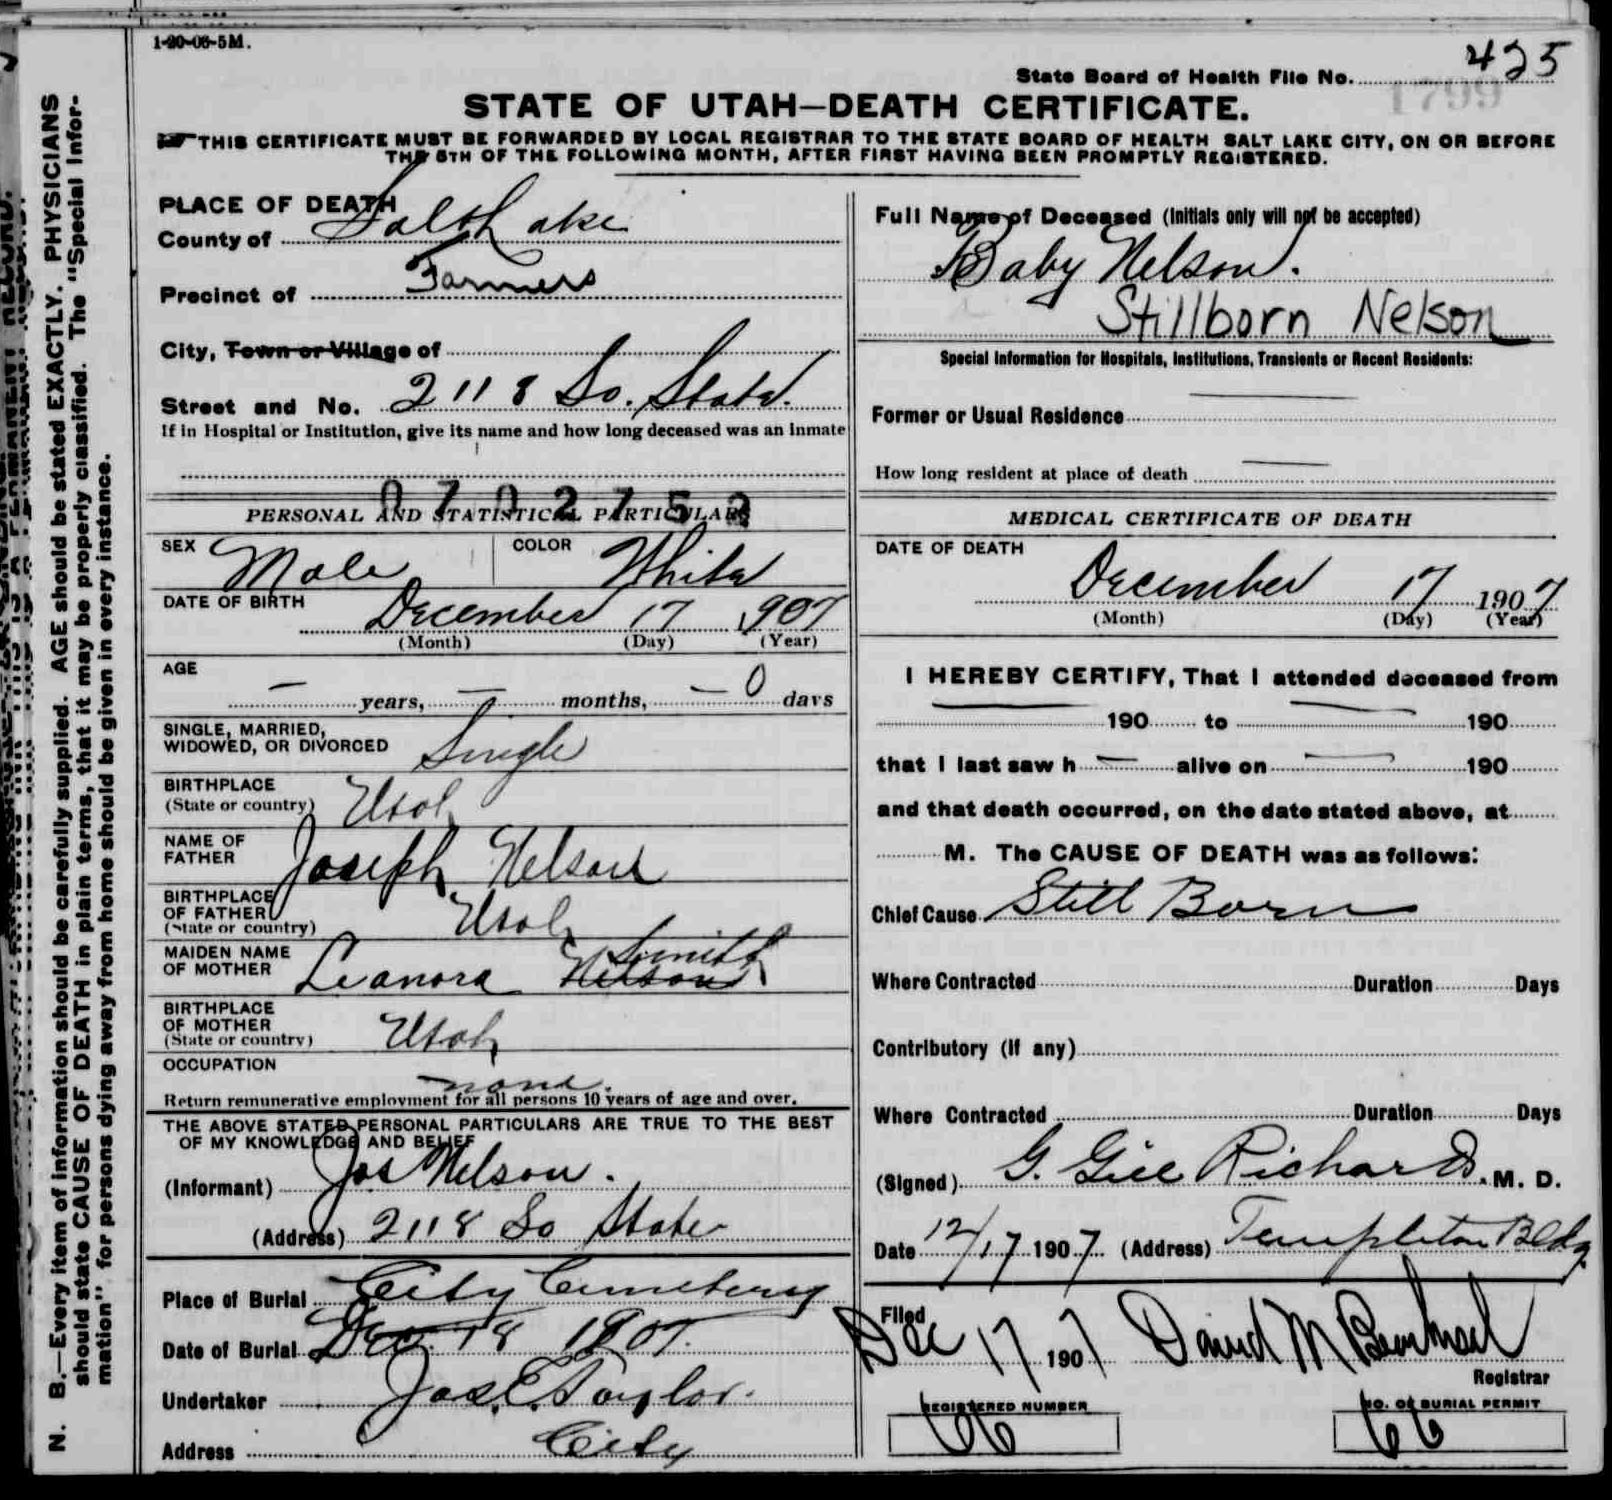 1-20-06-5M.
State Board of Health File No. 425
1799
STATE OF UTAH—DEATH CERTIFICATE.
THIS CERTIFICATE MUST BE FORWARDED BY LOCAL REGISTRAR TO THE STATE BOARD OF HEALTH SALT LAKE CITY, ON OR BEFORE
THE 5TH OF THE FOLLOWING MONTH, AFTER FIRST HAVING BEEN PROMPTLY REGISTERED.
PLACE OF DEATH
County of Salt Lake
Precinct of Farmers
City, Town or Village of
Street and No. 2118 So. State.
If in Hospital or Institution, give its name and how long deceased was an inmate
0702752
PERSONAL AND STATISTICAL PARTICULARS
SEX Male COLOR White
DATE OF BIRTH December 17 1907
(Month) (Day) (Year)
AGE
— years, — months, — 0 days
SINGLE, MARRIED,
WIDOWED, OR DIVORCED Single
BIRTHPLACE
(State or country) Utah
NAME OF
FATHER Joseph Nelson
BIRTHPLACE
OF FATHER
(State or country) Utah
MAIDEN NAME
OF MOTHER Leanora Nelson Smith
BIRTHPLACE
OF MOTHER
(State or country) Utah
OCCUPATION
none.
Return remunerative employment for all persons 10 years of age and over.
THE ABOVE STATED PERSONAL PARTICULARS ARE TRUE TO THE BEST
OF MY KNOWLEDGE AND BELIEF
(Informant) Jos Nelson.
(Address) 2118 So State
Place of Burial City Cemetery
Date of Burial Dec. 18 1907.
Undertaker Jos. E. Taylor.
Address City
Full Name of Deceased (Initials only will not be accepted)
Baby Nelson.
Stillborn Nelson
Special Information for Hospitals, Institutions, Transients or Recent Residents:
Former or Usual Residence —
How long resident at place of death —
MEDICAL CERTIFICATE OF DEATH
DATE OF DEATH
December 17 1907
(Month) (Day) (Year)
I HEREBY CERTIFY, That I attended deceased from
— 190 to — 190
that I last saw h — alive on — 190
and that death occurred, on the date stated above, at
M. The CAUSE OF DEATH was as follows:
Chief Cause Still Born
Where Contracted Duration Days
Contributory (if any)
Where Contracted Duration Days
(Signed) G. Gill Richards. M. D.
Date 12/17 1907 (Address) Templeton Bldg.
Filed
Dec 17 1907 David M
Registrar
REGISTERED NUMBER
66
NO. OF BURIAL PERMIT
66
N. B.—Every item of information should be carefully supplied. AGE should be stated EXACTLY. PHYSICIANS
should state CAUSE OF DEATH in plain terms, that it may be properly classified. The "Special Infor-
mation" for persons dying away from home should be given in every instance.